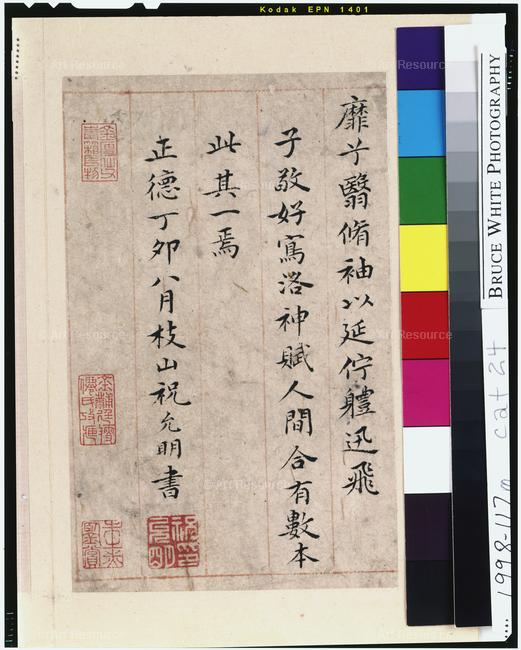 Kodak EPN 1401
靡兮翳脩袖以延佇體迅飛
子敬好寫洛神賦人間合有數本
此其一焉
正德丁卯八月枝山祝允明書
BRUCE WHITE PHOTOGRAPHY
1998-117m cat 24
Art Resource